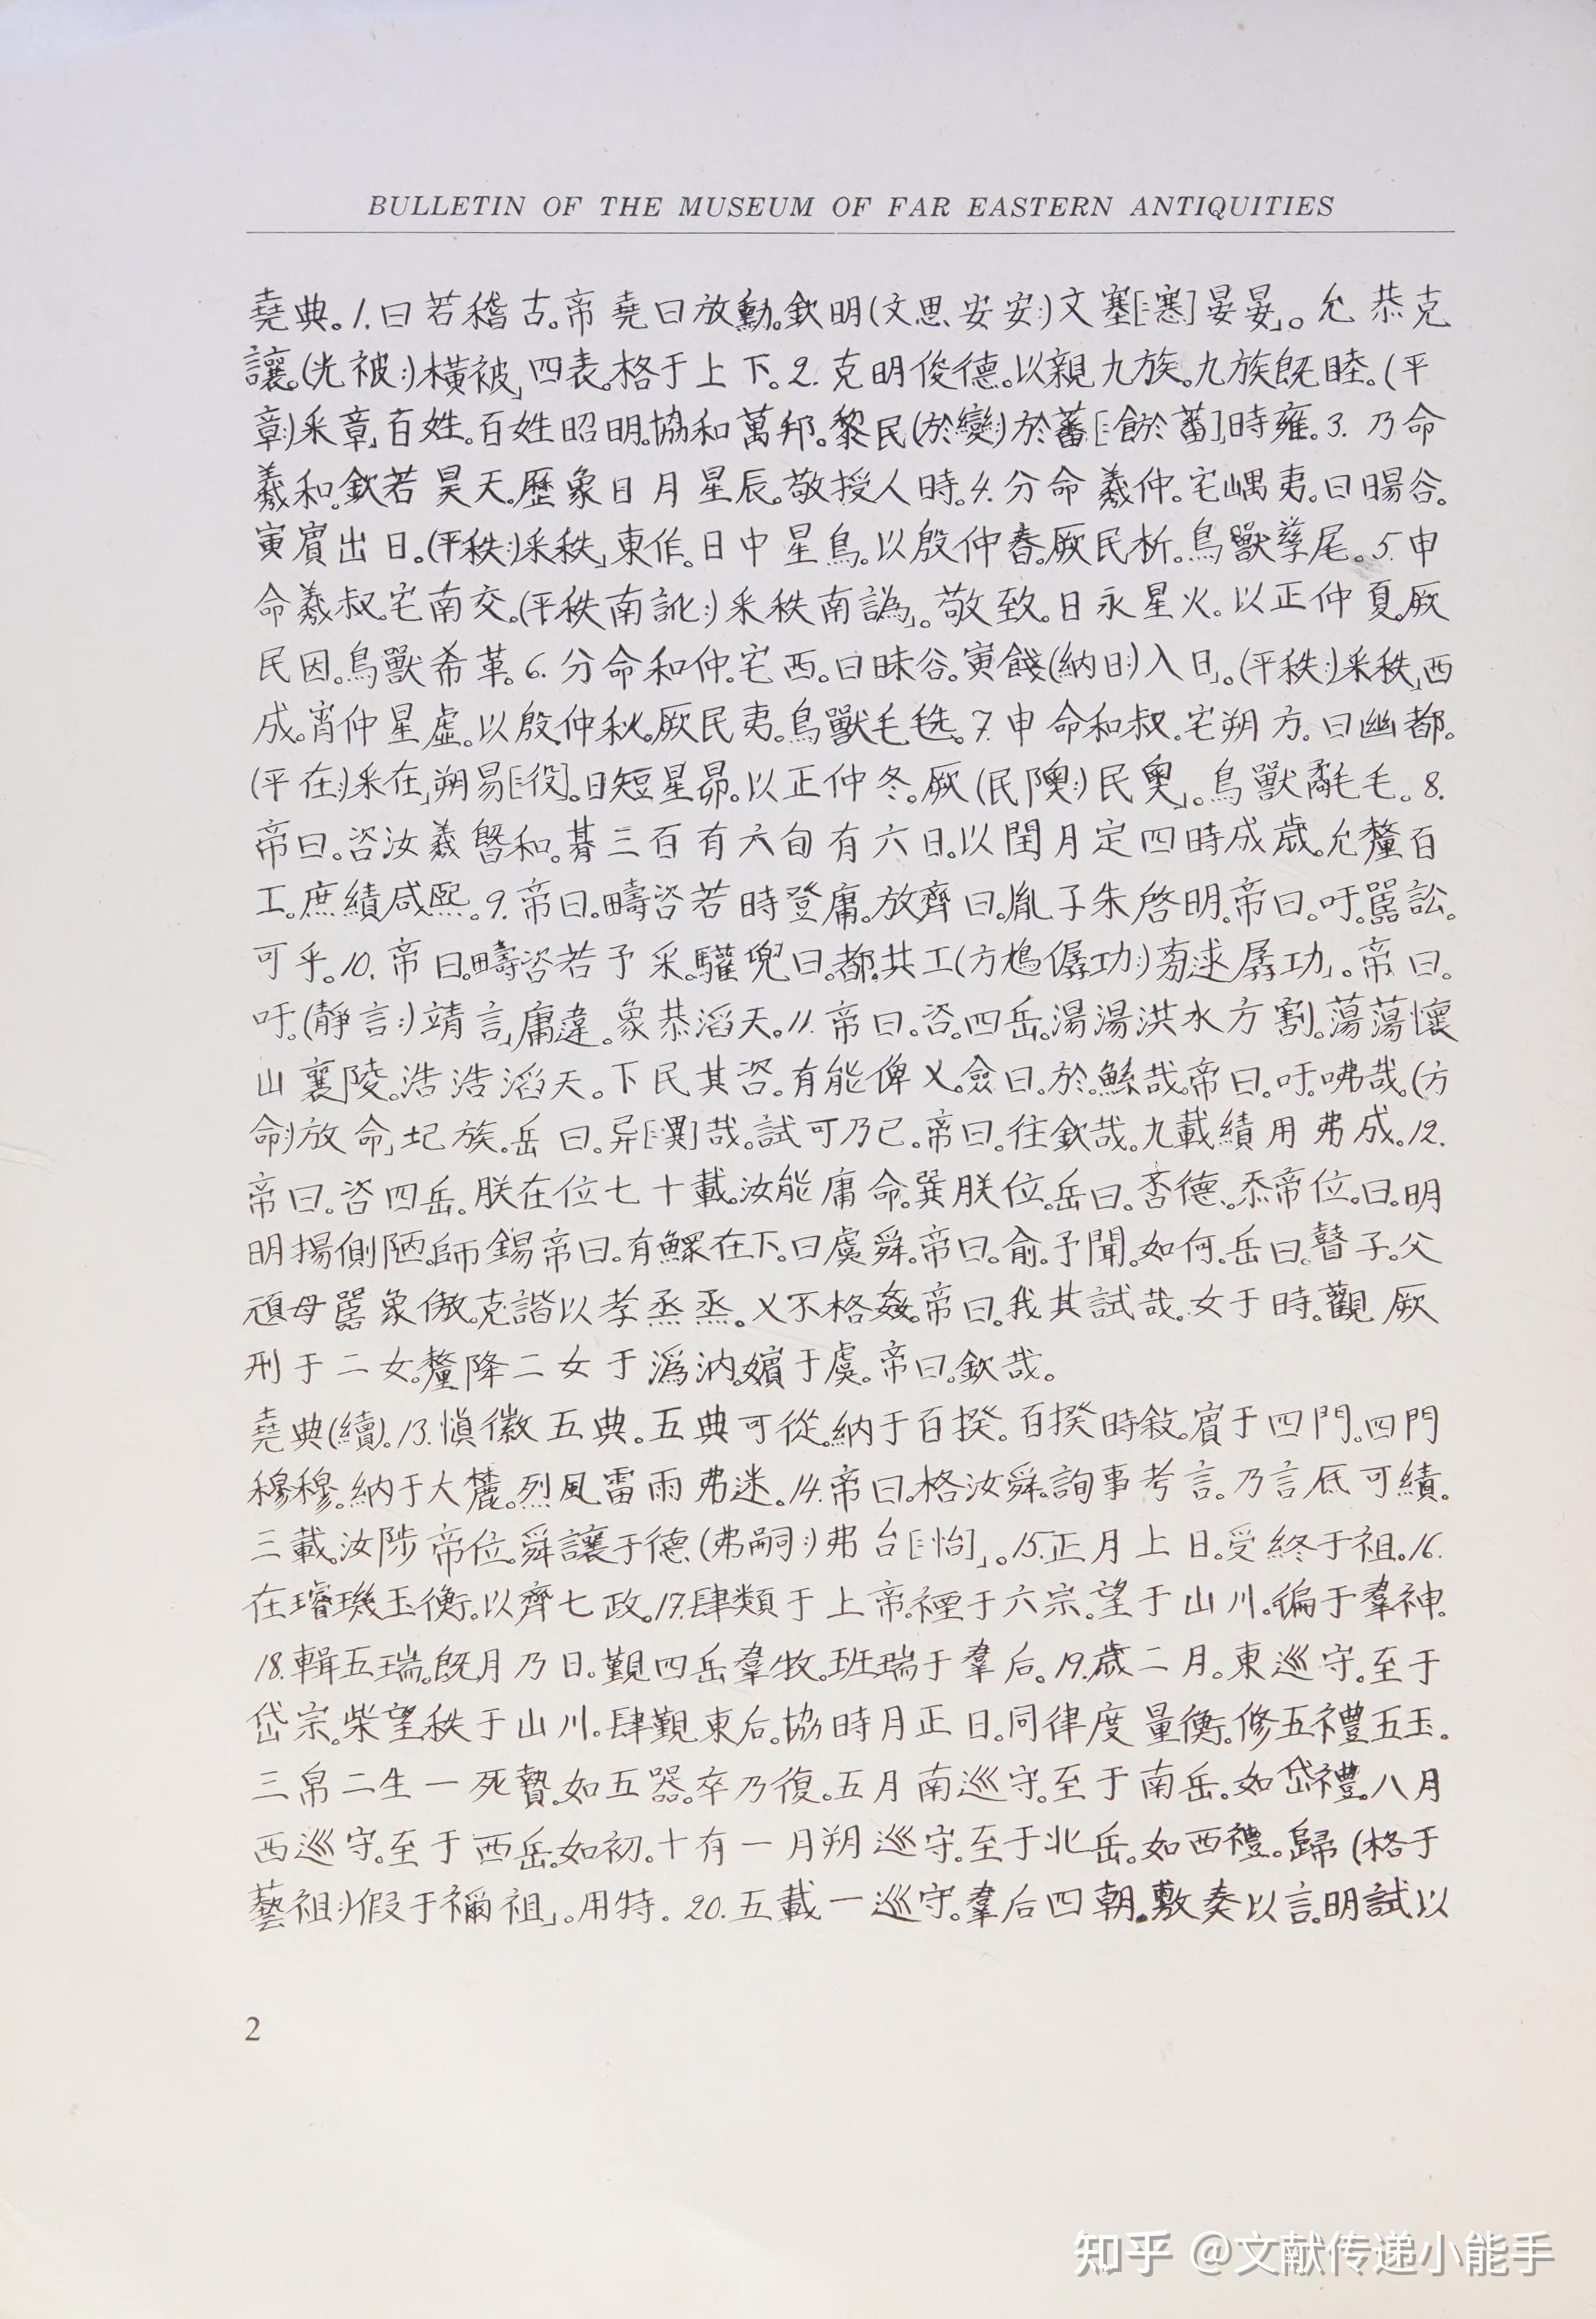 BULLETIN OF THE MUSEUM OF FAR EASTERN ANTIQUITIES
堯典。1.曰若稽古。帝堯曰放勳。欽明(文思安安:)文塞[:寒]晏晏」。允恭克
讓。(光被:)橫被」四表。格于上下。2.克明俊德。以親九族。九族既睦。(平
章:)釆章」百姓。百姓昭明。協和萬邦。黎民(於變:)於蕃[:飭於蕃]」時雍。3.乃命
羲和。欽若昊天。歷象日月星辰。敬授人時。4.分命羲仲。宅嵎夷。曰暘谷。
寅賓出日。(平秩:)釆秩」東作。日中星鳥。以殷仲春。厥民析。鳥獸孳尾。5.申
命羲叔。宅南交。(平秩南訛:)釆秩南譌」。敬致。日永星火。以正仲夏。厥
民因。鳥獸希革。6.分命和仲。宅西。曰昧谷。寅餞(納日:)入日」。(平秩:)釆秩」西
成。宵仲星虛。以殷仲秋。厥民夷。鳥獸毛毨。7.申命和叔。宅朔方。曰幽都。
(平在:)釆在」朔易[:役]。日短星昴。以正仲冬。厥(民隩:)民奧」。鳥獸氄毛。8.
帝曰。咨汝羲曁和。朞三百有六旬有六日。以閏月定四時成歲。允釐百
工。庶績咸熙。9.帝曰。疇咨若時登庸。放齊曰。胤子朱啓明。帝曰。吁。嚚訟。
可乎。10.帝曰。疇咨若予采。驩兜曰。都。共工(方鳩僝功:)旁逑孱功」。帝曰。
吁。(靜言:)靖言」庸違。象恭滔天。11.帝曰。咨。四岳。湯湯洪水方割。蕩蕩懷
山襄陵。浩浩滔天。下民其咨。有能俾乂。僉曰。於。鯀哉。帝曰。吁。咈哉。(方
命:)放命」圮族。岳曰。异[:異]哉。試可乃已。帝曰。往欽哉。九載績用弗成。12.
帝曰。咨四岳。朕在位七十載。汝能庸命。巽朕位。岳曰。否德。忝帝位。曰。明
明揚側陋。師錫帝曰。有鰥在下。曰虞舜。帝曰。俞。予聞。如何。岳曰。瞽子。父
頑母嚚象傲。克諧以孝烝烝。乂不格姦。帝曰。我其試哉。女于時。觀厥
刑于二女。釐降二女于潙汭。嬪于虞。帝曰。欽哉。
堯典(續)。13.愼徽五典。五典可從。納于百揆。百揆時敍。賓于四門。四門
穆穆。納于大麓。烈風雷雨弗迷。14.帝曰。格汝舜。詢事考言。乃言厎可績。
三載。汝陟帝位。舜讓于德。(弗嗣:)弗台[:怡]」。15.正月上日。受終于祖。16.
在璿璣玉衡。以齊七政。17.肆類于上帝。禋于六宗。望于山川。徧于羣神。
18.輯五瑞。既月乃日。覲四岳羣牧。班瑞于羣后。19.歲二月。東巡守。至于
岱宗。柴望秩于山川。肆覲東后。協時月正日。同律度量衡。修五禮五玉。
三帛二生一死贄。如五器。卒乃復。五月南巡守。至于南岳。如岱禮。八月
西巡守。至于西岳。如初。十有一月朔巡守。至于北岳。如西禮。歸(格于
藝祖:)假于禰祖」。用特。20.五載一巡守。羣后四朝。敷奏以言。明試以
2
知乎 @文献传递小能手